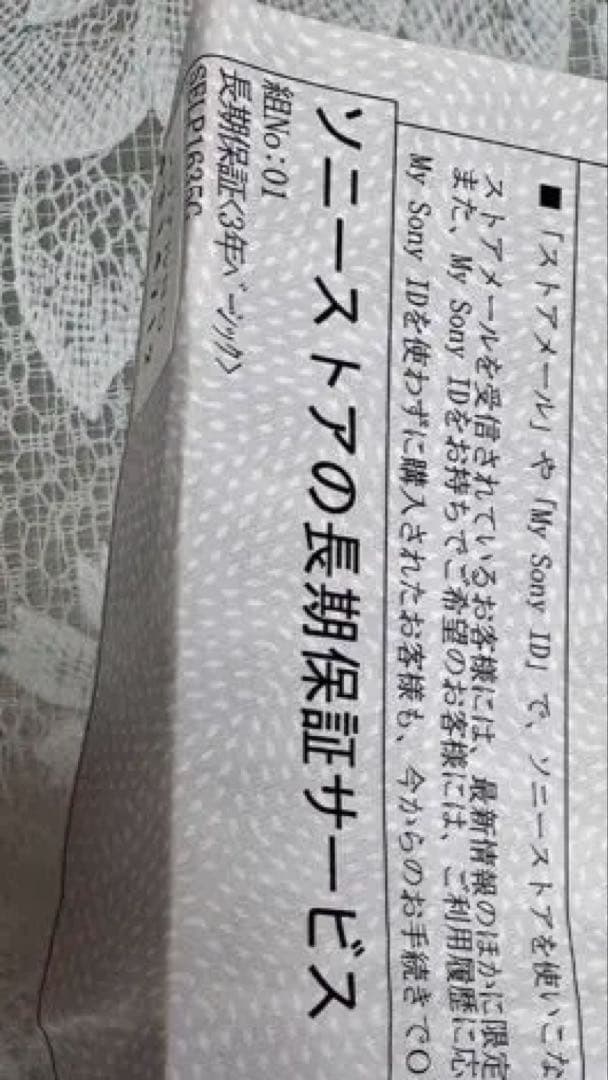 ■「ストアメール」や「My Sony ID」で、ソニーストアを使いこな
ストアメールを受信されているお客様には、最新情報のほかに限定
また、My Sony IDをお持ちでご希望のお客様には、ご利用履歴に応
My Sony IDを使わずに購入されたお客様も、今からのお手続きで〇
ソニーストアの長期保証サービス
組No:01
長期保証<3年ベーシック>
SELP1625G